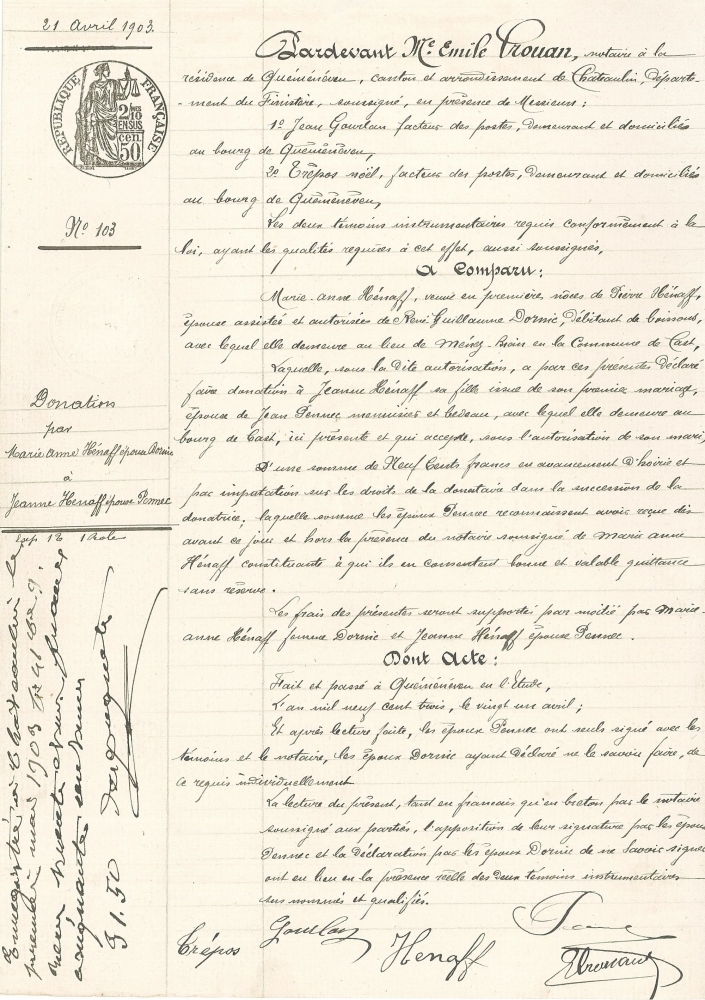 21 Avril 1903.
RÉPUBLIQUE FRANÇAISE
2/10
EN SUS
cen.
50
Nº 103
Donation
par
Marie anne Hénaff épouse Dornic
à
Jeanne Henaff épouse Pennec
Exp 1 Role
Enregistré à Chateaulin le
premier mai 1903
Reçu trente et un francs
cinquante centimes
31.50
Pardevant Me Emile Crouan, notaire à la
résidence de Quéménéven, canton et arrondissement de Chateaulin, départe-
-ment du Finistère, soussigné, en présence de Messieurs :
1º Jean Gourlan facteur des postes, demeurant et domicilié
au bourg de Quéménéven,
2º Trépos noël, facteur des postes, demeurant et domicilié
au bourg de Quéménéven,
Les deux témoins instrumentaires requis conformément à la
loi, ayant les qualités requises à cet effet, aussi soussignés,
A Comparu :
Marie-anne Hénaff, veuve en premières nôces de Pierre Hénaff,
épouse assistée et autorisée de René Guillaume Dornic, débitant de boissons,
avec lequel elle demeure au lieu de Ménez-Bian en la Commune de Cast,
Laquelle, sous la dite autorisation, a par ces présentes déclaré
faire donation à Jeanne Hénaff sa fille issue de son premier mariage,
épouse de Jean Pennec menuisier et bedeau, avec lequel elle demeure au
bourg de Cast, ici présente et qui accepte, sous l'autorisation de son mari,
D'une somme de Neuf Cents francs en avancement d'hoirie et
par imputation sur les droits de la donataire dans la succession de la
donatrice, laquelle somme les époux Pennec reconnaissent avoir reçue dès
avant ce jour et hors la présence du notaire soussigné de Marie anne
Hénaff constituante à qui ils en consentent bonne et valable quittance
sans réserve.
Les frais des présentes seront supportés par moitié par Marie-
anne Hénaff femme Dornic et Jeanne Hénaff épouse Pennec.
Dont Acte :
Fait et passé à Quéménéven en l'Etude,
L'an mil neuf cent trois, le vingt un avril ;
Et après lecture faite, les époux Pennec ont seuls signé avec les
témoins et le notaire, les époux Dornic ayant déclaré ne le savoir faire, de
ce requis individuellement
La lecture du présent, tant en français qu'en breton par le notaire
soussigné aux parties, l'apposition de leur signature par les époux
Pennec et la déclaration par les époux Dornic de ne savoir signer
ont eu lieu en la présence réelle des deux témoins instrumentaires
sus nommés et qualifiés.
Trépos
Gourlan
Henaff
ECrouan